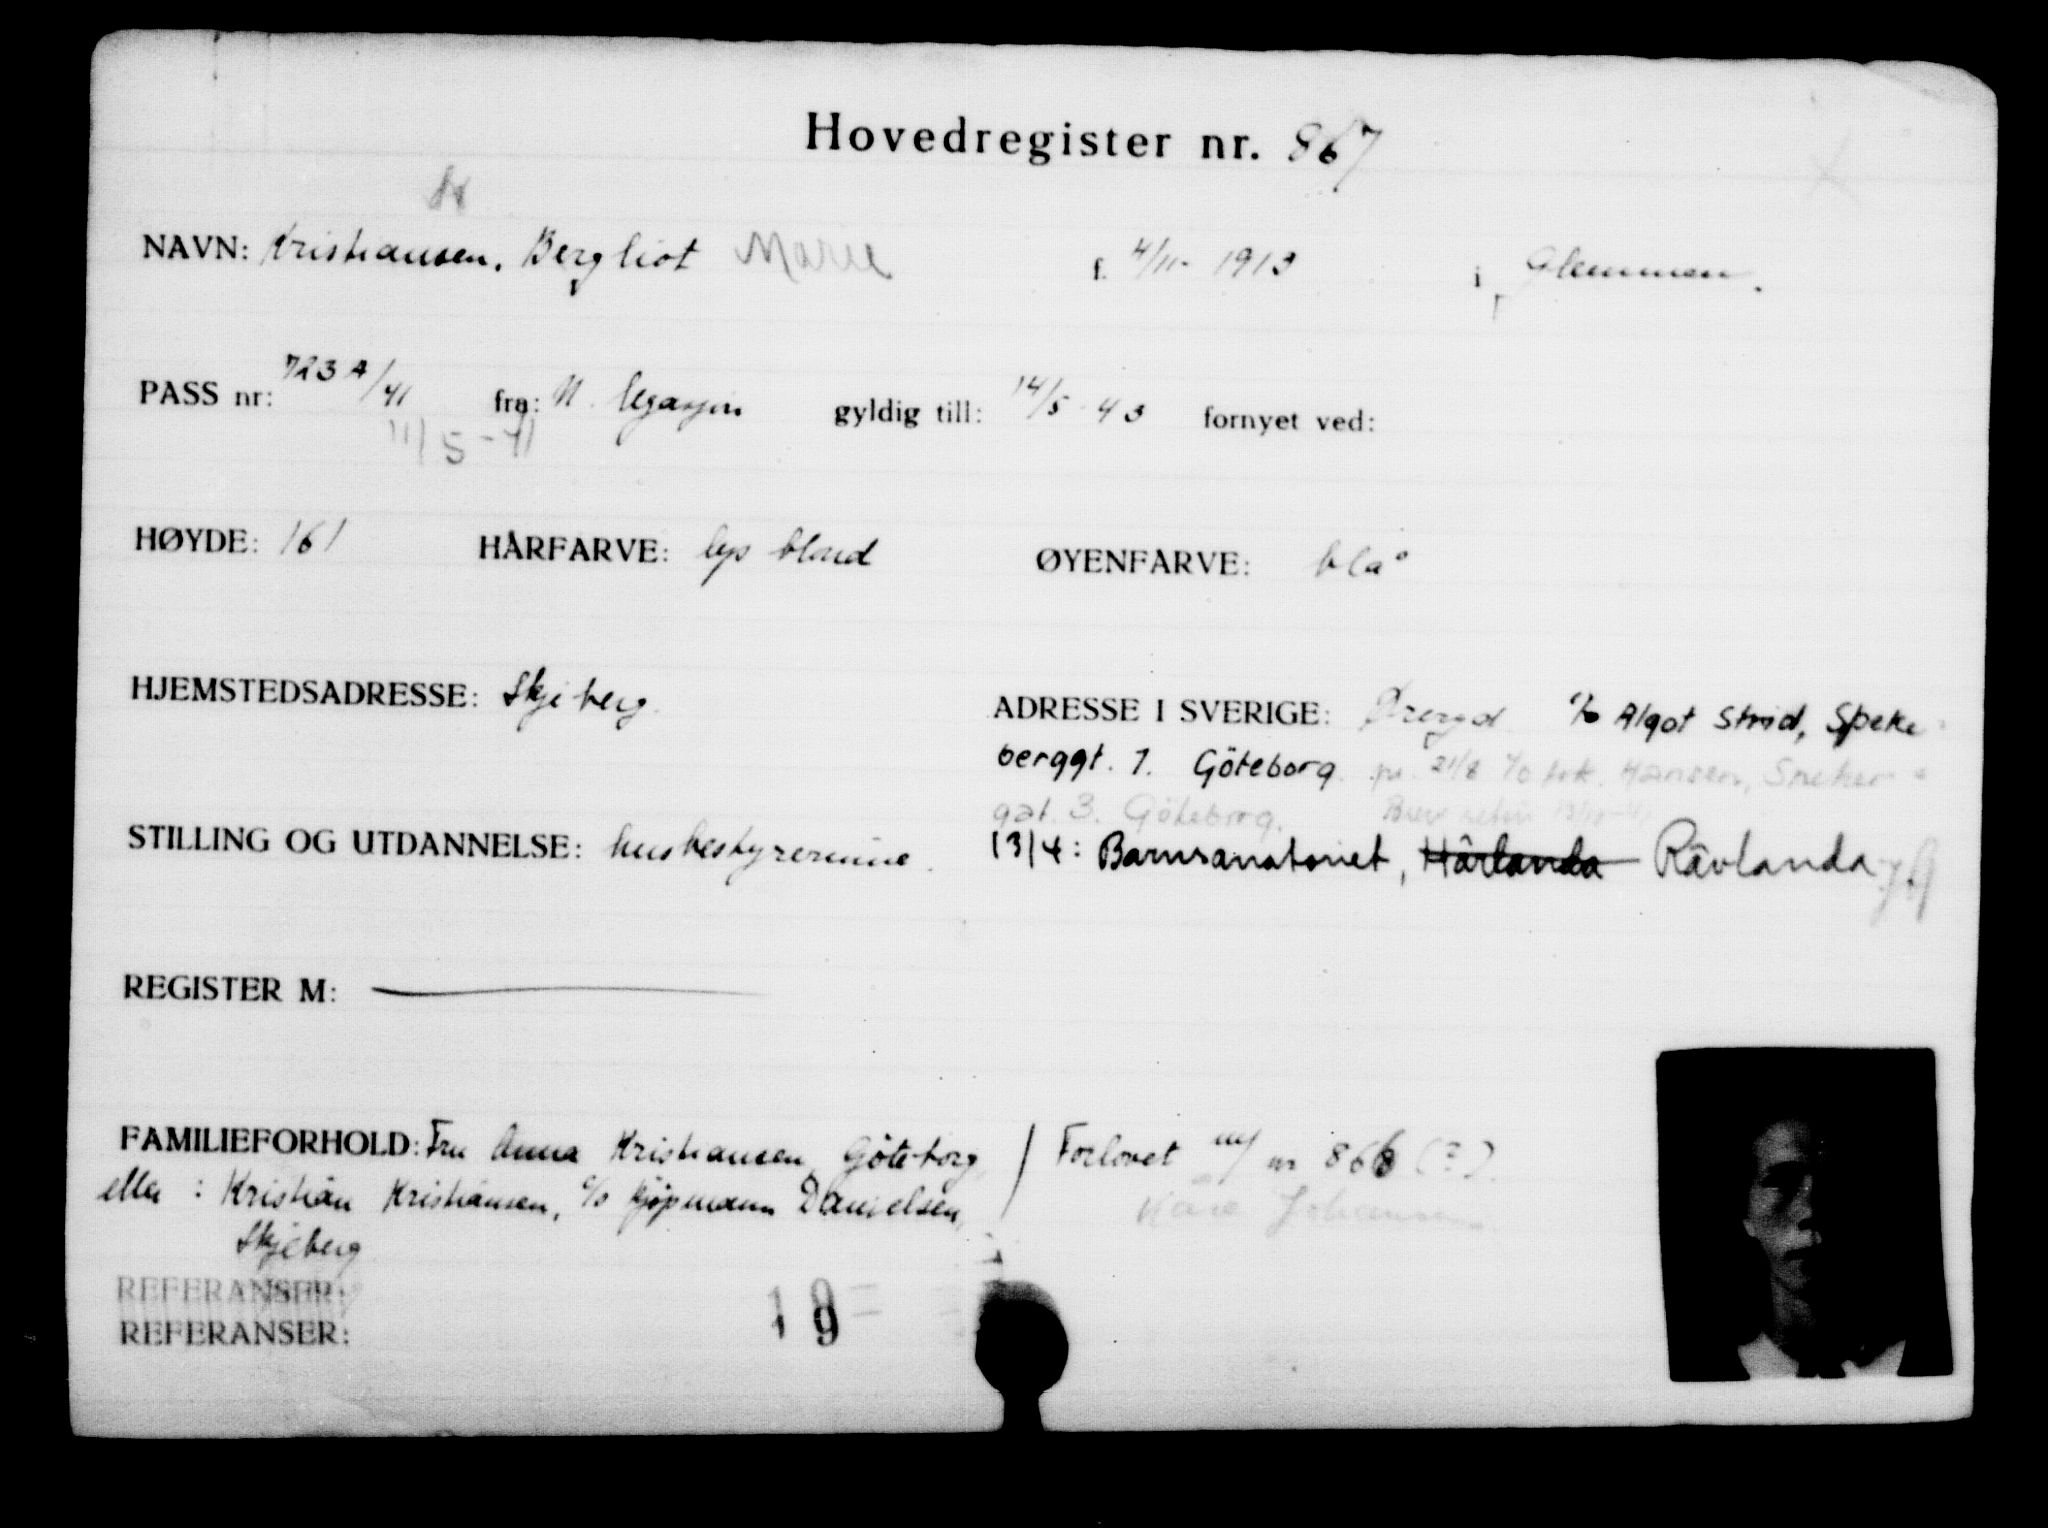 Hovedregister nr. 867
NAVN: Kristiansen, Bergliot Marie f. 4/11- 1913 i Glemmen.
PASS nr: 723 A/41 fra: N. legasjon gyldig till: 14/5 - 43 fornyet ved:
11/5-41
HØYDE: 161 HÅRFARVE: lys blond ØYENFARVE: blå
HJEMSTEDSADRESSE: Skjeberg. ADRESSE I SVERIGE: Øreryd c/o Algot Strid, Speke-
berggt. 7. Göteborg. pr. 21/8 c/o frk. Hansen, Sneker-
gat. 3. Göteborg. Brev retur
STILLING OG UTDANNELSE: husbestyrerinne. 13/4: Barnsanatoriet, Hårlanda Råvlanda
REGISTER M: —
FAMILIEFORHOLD: Fru Anna Kristiansen, Göteborg / Forlovet m/ nr 866 (?).
eller : Kristian Kristiansen, c/o kjøpmann Danielsen, Kåre Johansen
Skjeberg
REFERANSER:
REFERANSER:
19